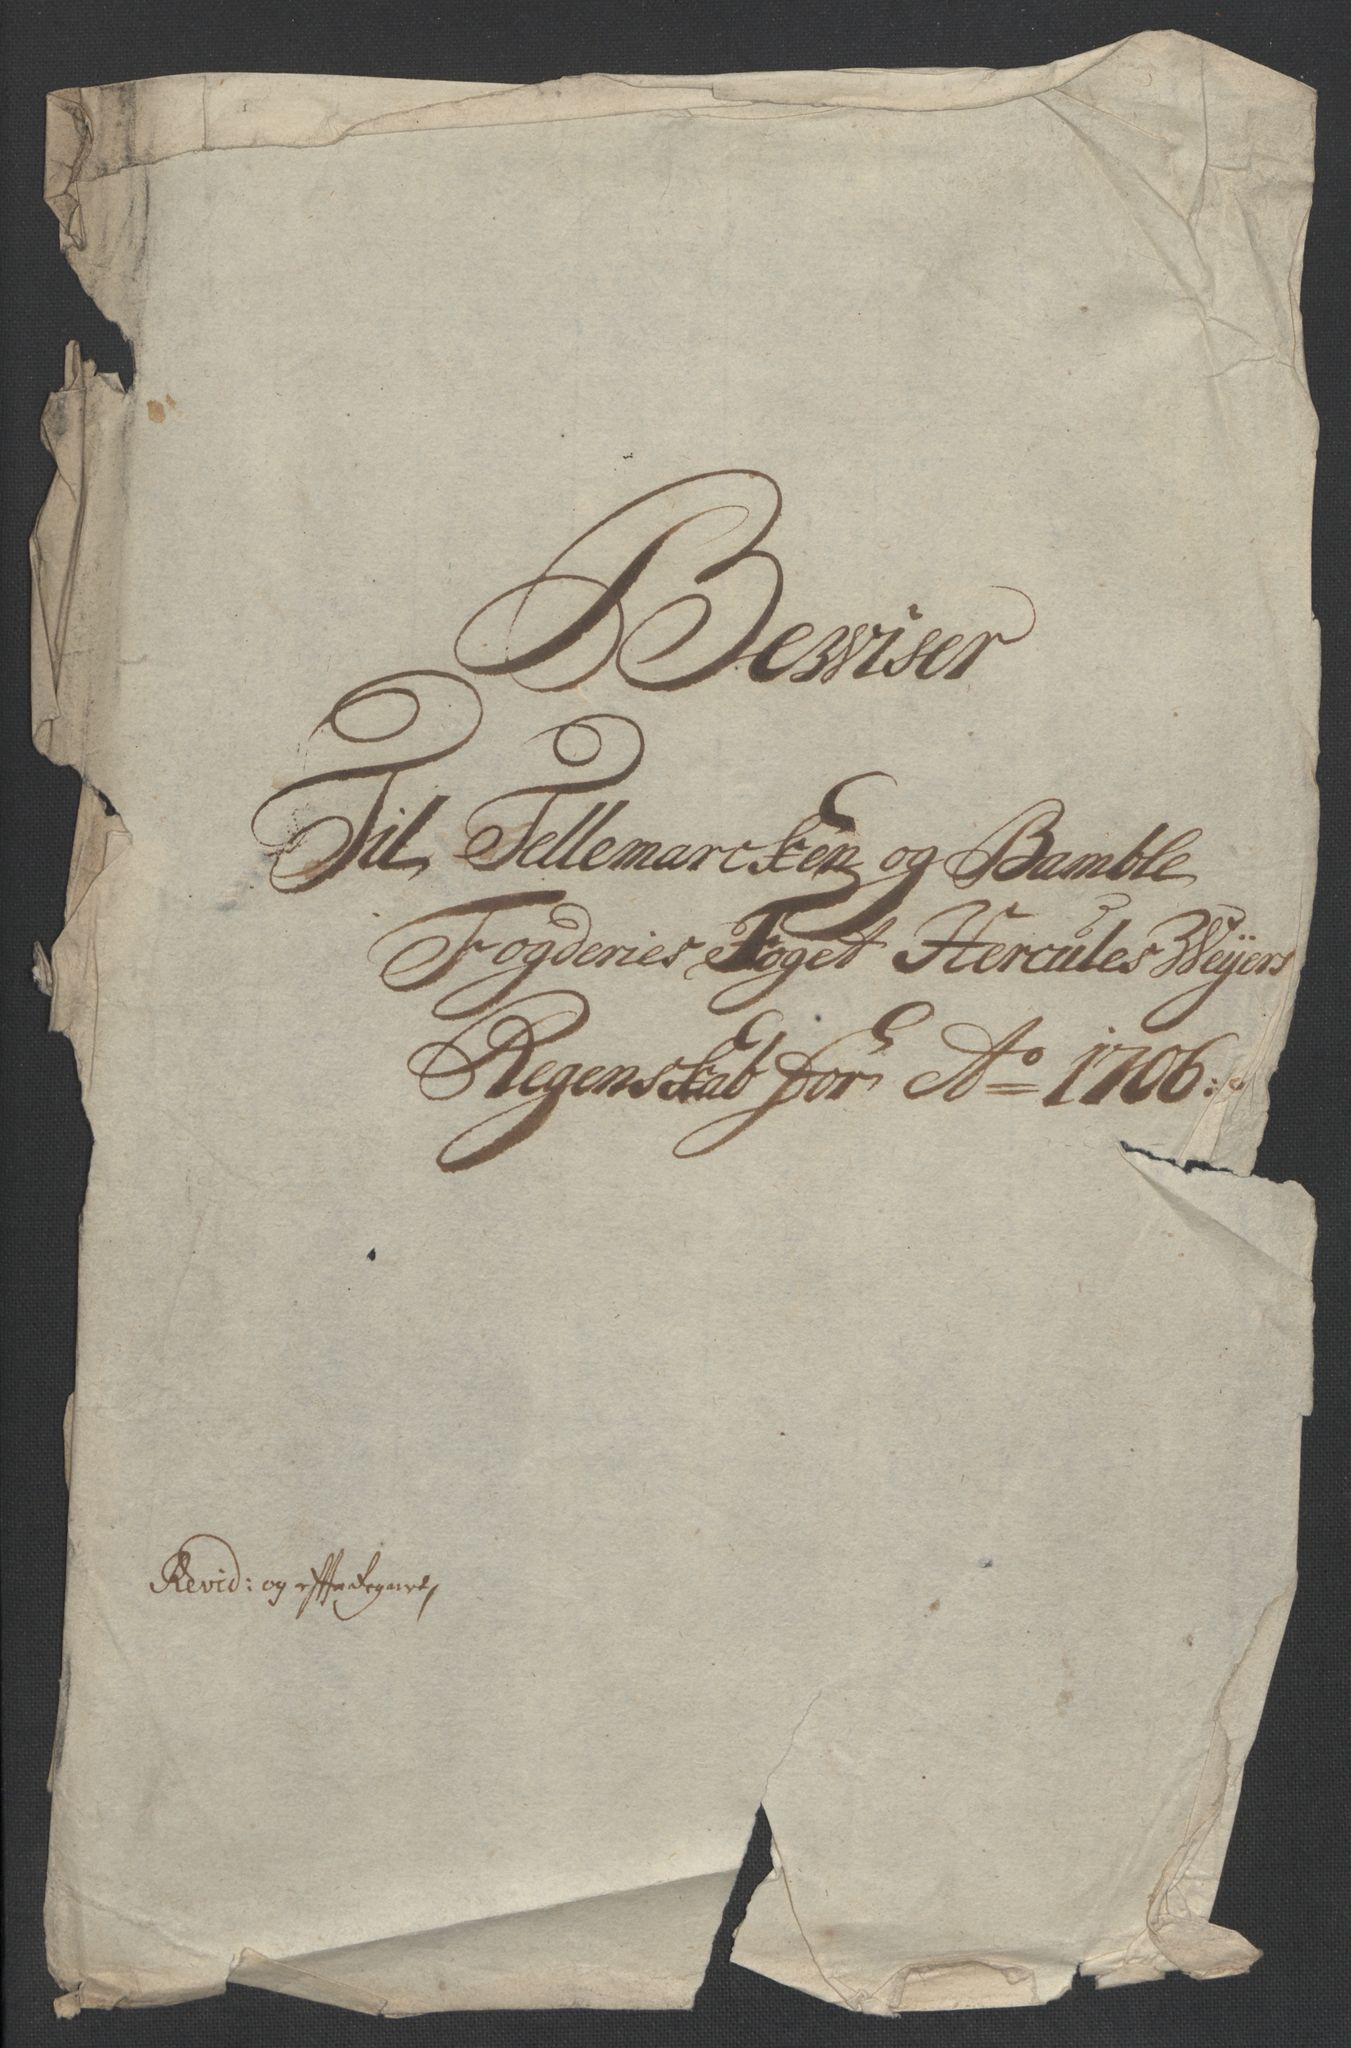 Bewiser
Til Tellemarcken og Bamble
Fogderies Foget Hercules Weÿers
Regenskab for Ao 1706:
Revid: og efterregnet